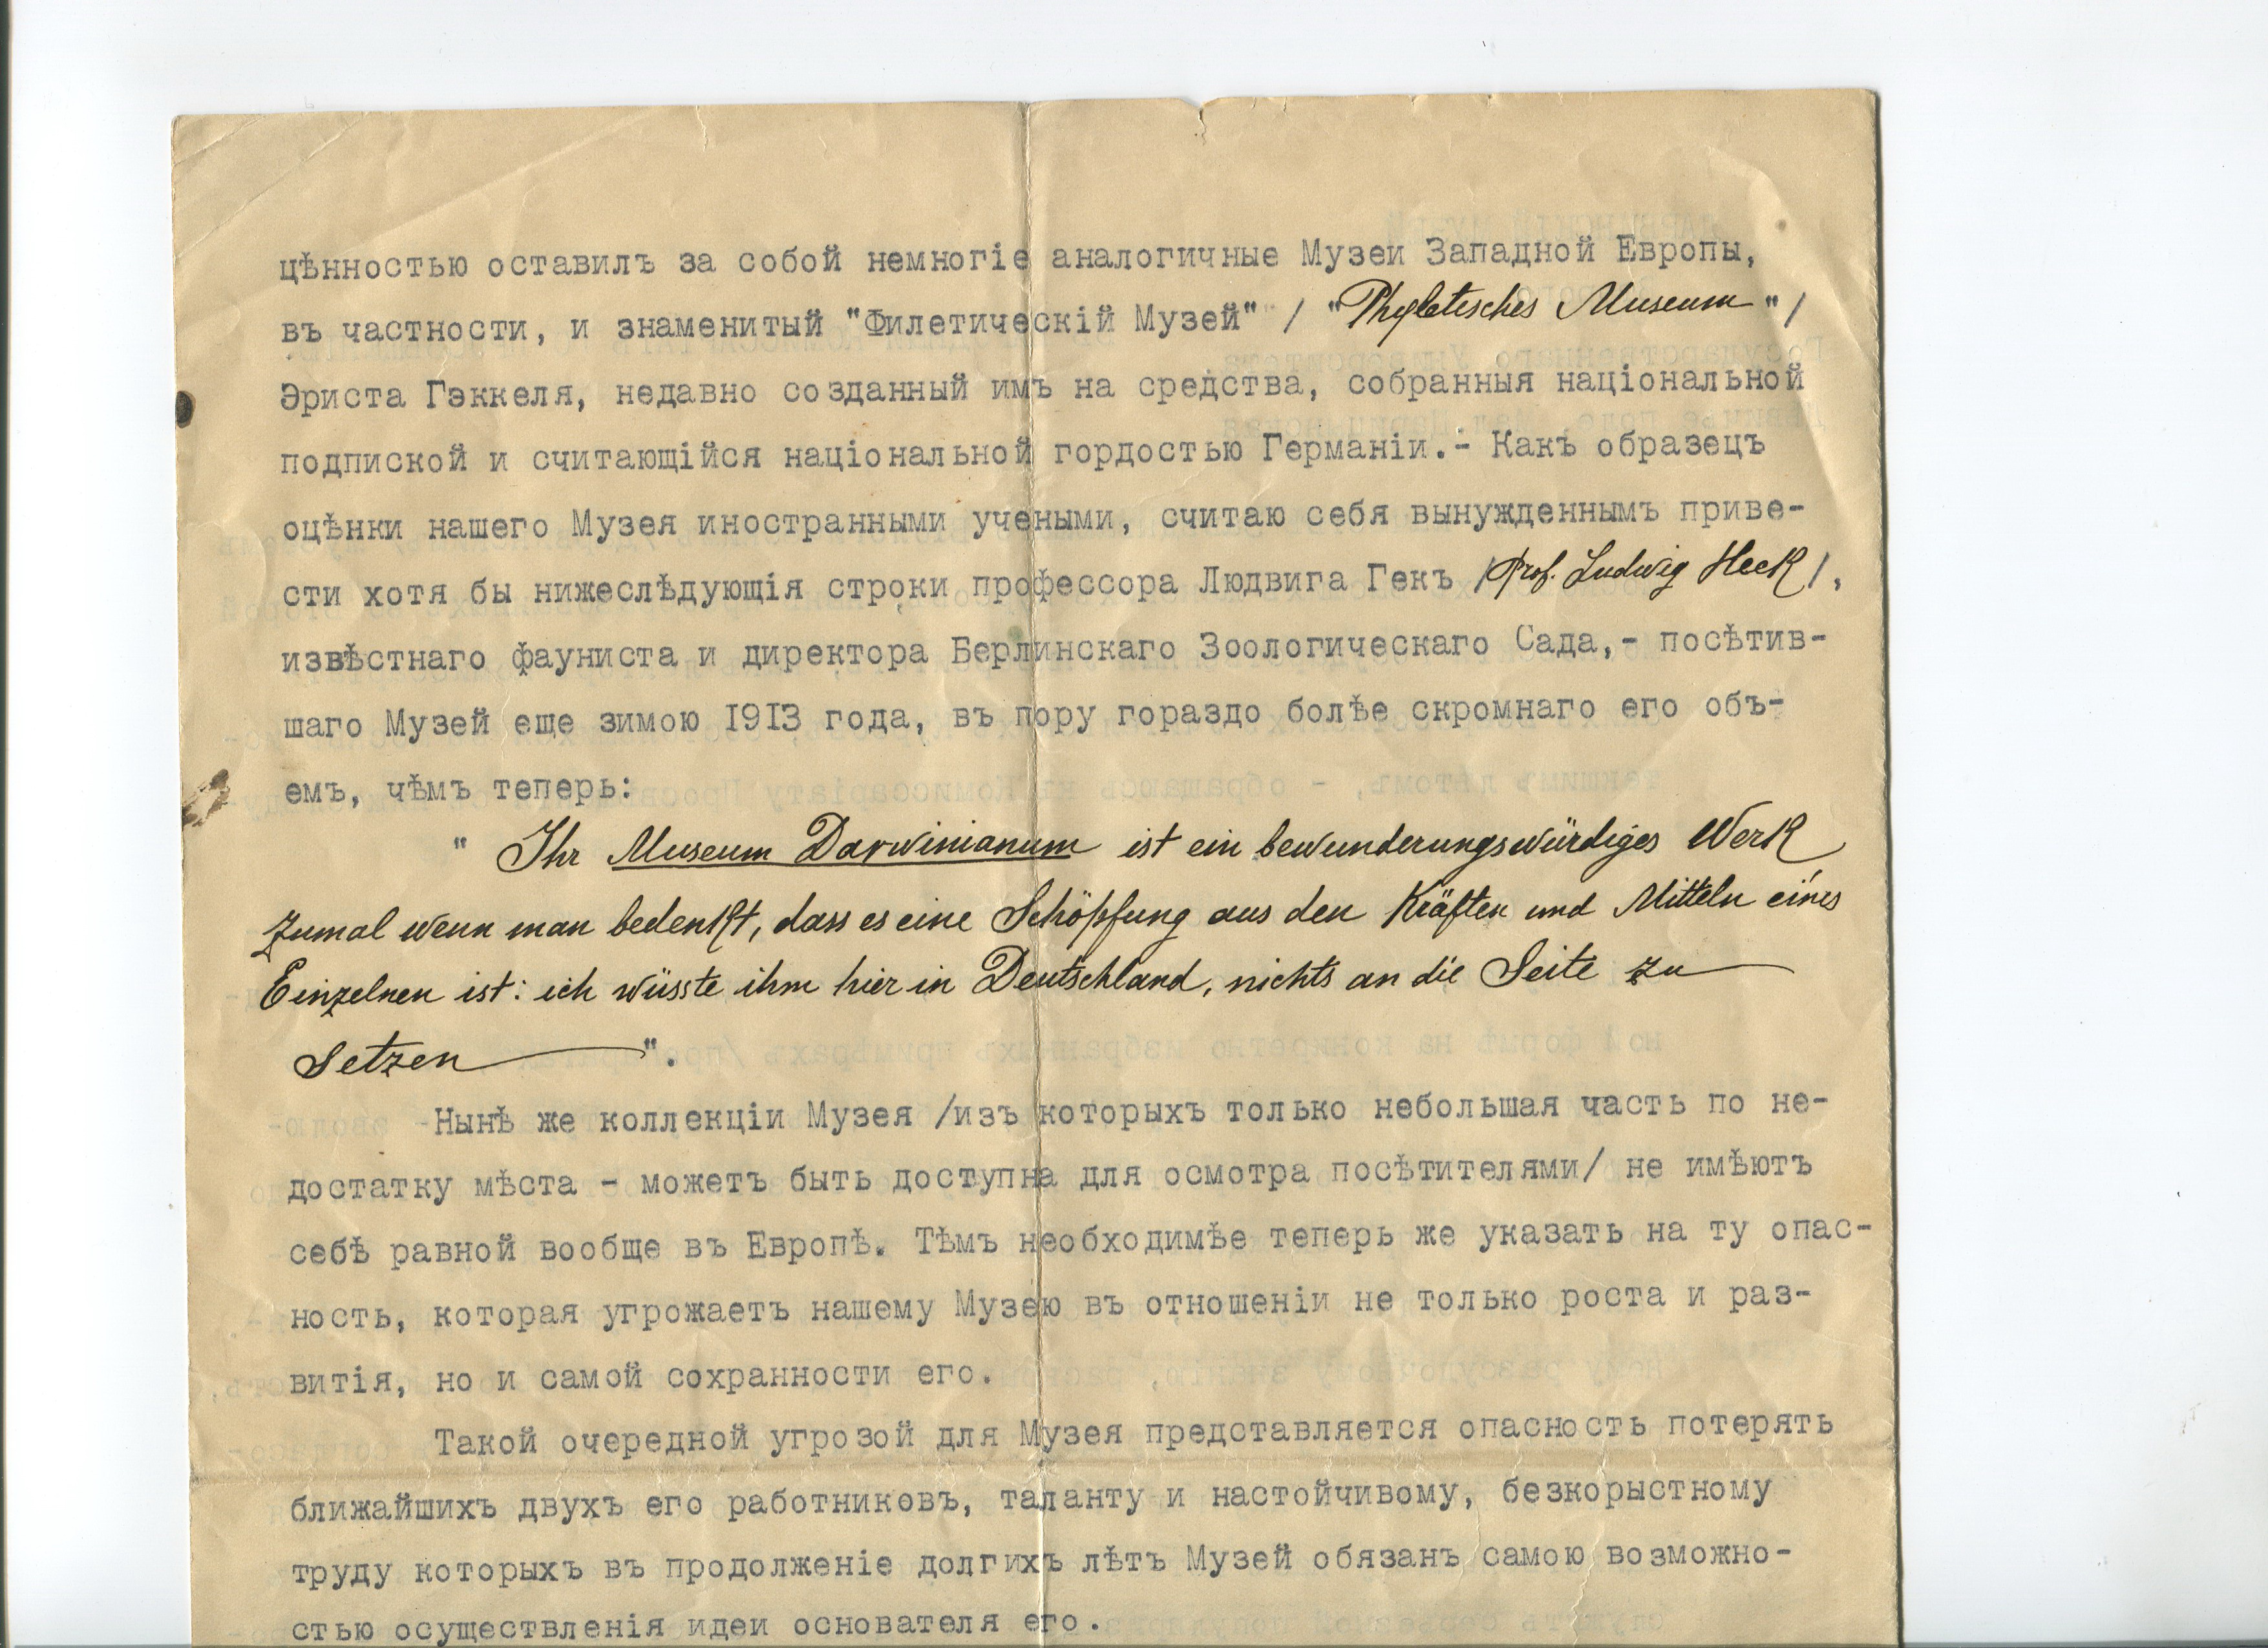 цѣнностью оставилъ за собой немногіе аналогичные Музеи Западной Европы,
въ частности, и знаменитый "Филетическій Музей" / "Phyletisches Museum" /
Эриста Гэккеля, недавно созданный имъ на средства, собранныя національной
подпиской и считающійся національной гордостью Германіи.- Какъ образецъ
оцѣнки нашего Музея иностранными учеными, считаю себя вынужденнымъ приве-
сти хотя бы нижеслѣдующія строки профессора Людвига Гекъ /Prof. Ludwig Heck/,
извѣстнаго фауниста и директора Берлинскаго Зоологическаго Сада,- посѣтив-
шаго Музей еще зимою 1913 года, въ пору гораздо болѣе скромнаго его объ-
емъ, чѣмъ теперь:
" Ihr Museum Darwinianum ist ein bewunderungswürdiges Werk
zumal wenn man bedenkt, dass es eine Schöpfung aus den Kräften und Mitteln eines
Einzelnen ist: ich wüsste ihm hier in Deutschland, nichts an die Seite zu
setzen ".
Нынѣ же коллекціи Музея /изъ которыхъ только небольшая часть по не-
достатку мѣста - можетъ быть доступна для осмотра посѣтителями/ не имѣютъ
себѣ равной вообще въ Европѣ. Тѣмъ необходимѣе теперь же указать на ту опас-
ность, которая угрожаетъ нашему Музею въ отношеніи не только роста и раз-
витія, но и самой сохранности его.
Такой очередной угрозой для Музея представляется опасность потерять
ближайшихъ двухъ его работниковъ, таланту и настойчивому, безкорыстному
труду которыхъ въ продолженіе долгихъ лѣтъ Музей обязанъ самою возможно-
стью осуществленія идеи основателя его.